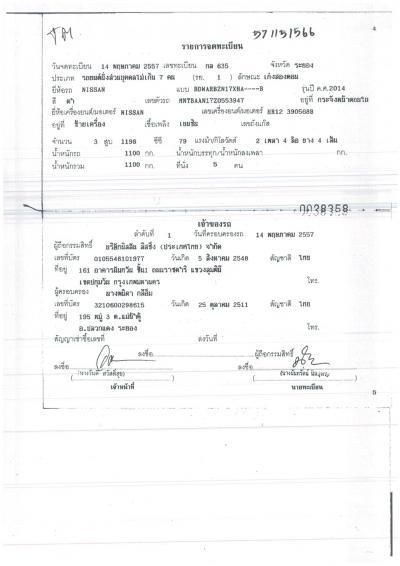 571131566
4
รายการจดทะเบียน
วันจดทะเบียน 14 พฤษภาคม 2557 เลขทะเบียน กล 635 จังหวัด ระยอง
ประเภท รถยนต์นั่งส่วนบุคคลไม่เกิน 7 คน (รย. 1 ) ลักษณะ เก๋งสองตอน
ยี่ห้อรถ NISSAN แบบ BDMARBZN17XHA----B รุ่นปี ค.ศ.2014
สี ดำ เลขตัวรถ MNTBAAN17Z0553947 อยู่ที่
ยี่ห้อเครื่องยนต์/มอเตอร์ NISSAN เลขเครื่องยนต์/มอเตอร์ HR12 390568B
อยู่ที่ ซ้ายเครื่อง เชื้อเพลิง เบนซิน เลขถังแก๊ส
จำนวน 3 สูบ 1198 ซีซี 79 แรงม้า/กิโลวัตต์ 2 เพลา 4 ล้อ ยาง 4 เส้น
น้ำหนักรถ 1100 กก. น้ำหนักบรรทุก/น้ำหนักลงเพลา กก.
น้ำหนักรวม 1100 กก. ที่นั่ง 5 คน
0038358
เจ้าของรถ
ลำดับที่ 1 วันที่ครอบครองรถ 14 พฤษภาคม 2557
ผู้ถือกรรมสิทธิ์ ลิสซิ่ง (ประเทศไทย) จำกัด
เลขที่บัตร 0105548101977 วันเกิด 5 สิงหาคม 2548 สัญชาติ ไทย
ที่อยู่ 161 อาคาร ชั้น1 ถนนราชดำริ แขวงลุมพินี
เขตปทุมวัน กรุงเทพมหานคร โทร.
ผู้ครอบครอง
เลขที่บัตร 3210600298615 วันเกิด 25 ตุลาคม 2511 สัญชาติ ไทย
ที่อยู่ 195 หมู่ 3 ต.แม่น้ำคู้
อ.ปลวกแดง ระยอง โทร.
สัญญาเช่าซื้อเลขที่ ลงวันที่
ลงชื่อ ผู้ถือกรรมสิทธิ์
ลงชื่อ ลงชื่อ
เจ้าหน้าที่ นายทะเบียน
5